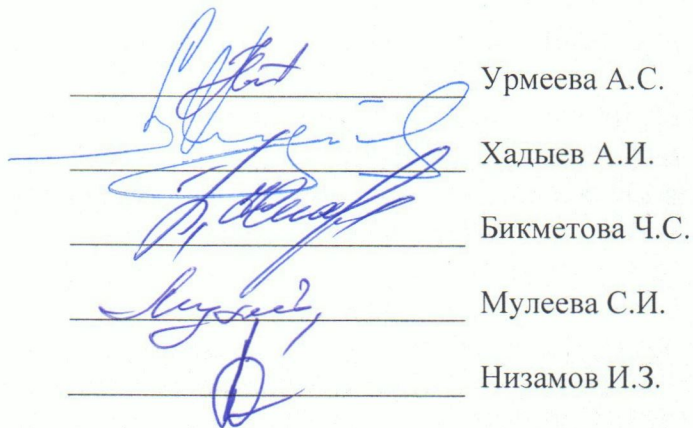 Урмеева А.С.
Хадыев А.И.
Бикметова Ч.С.
Мулеева С.И.
Низамов И.З.